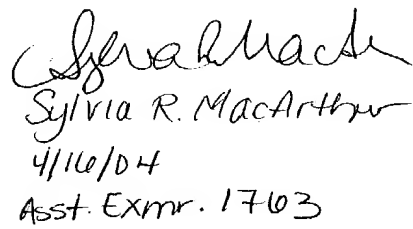 Sylvia R MacAr
Sylvia R. MacArthur
4/16/04
Asst. Exmr. 1763